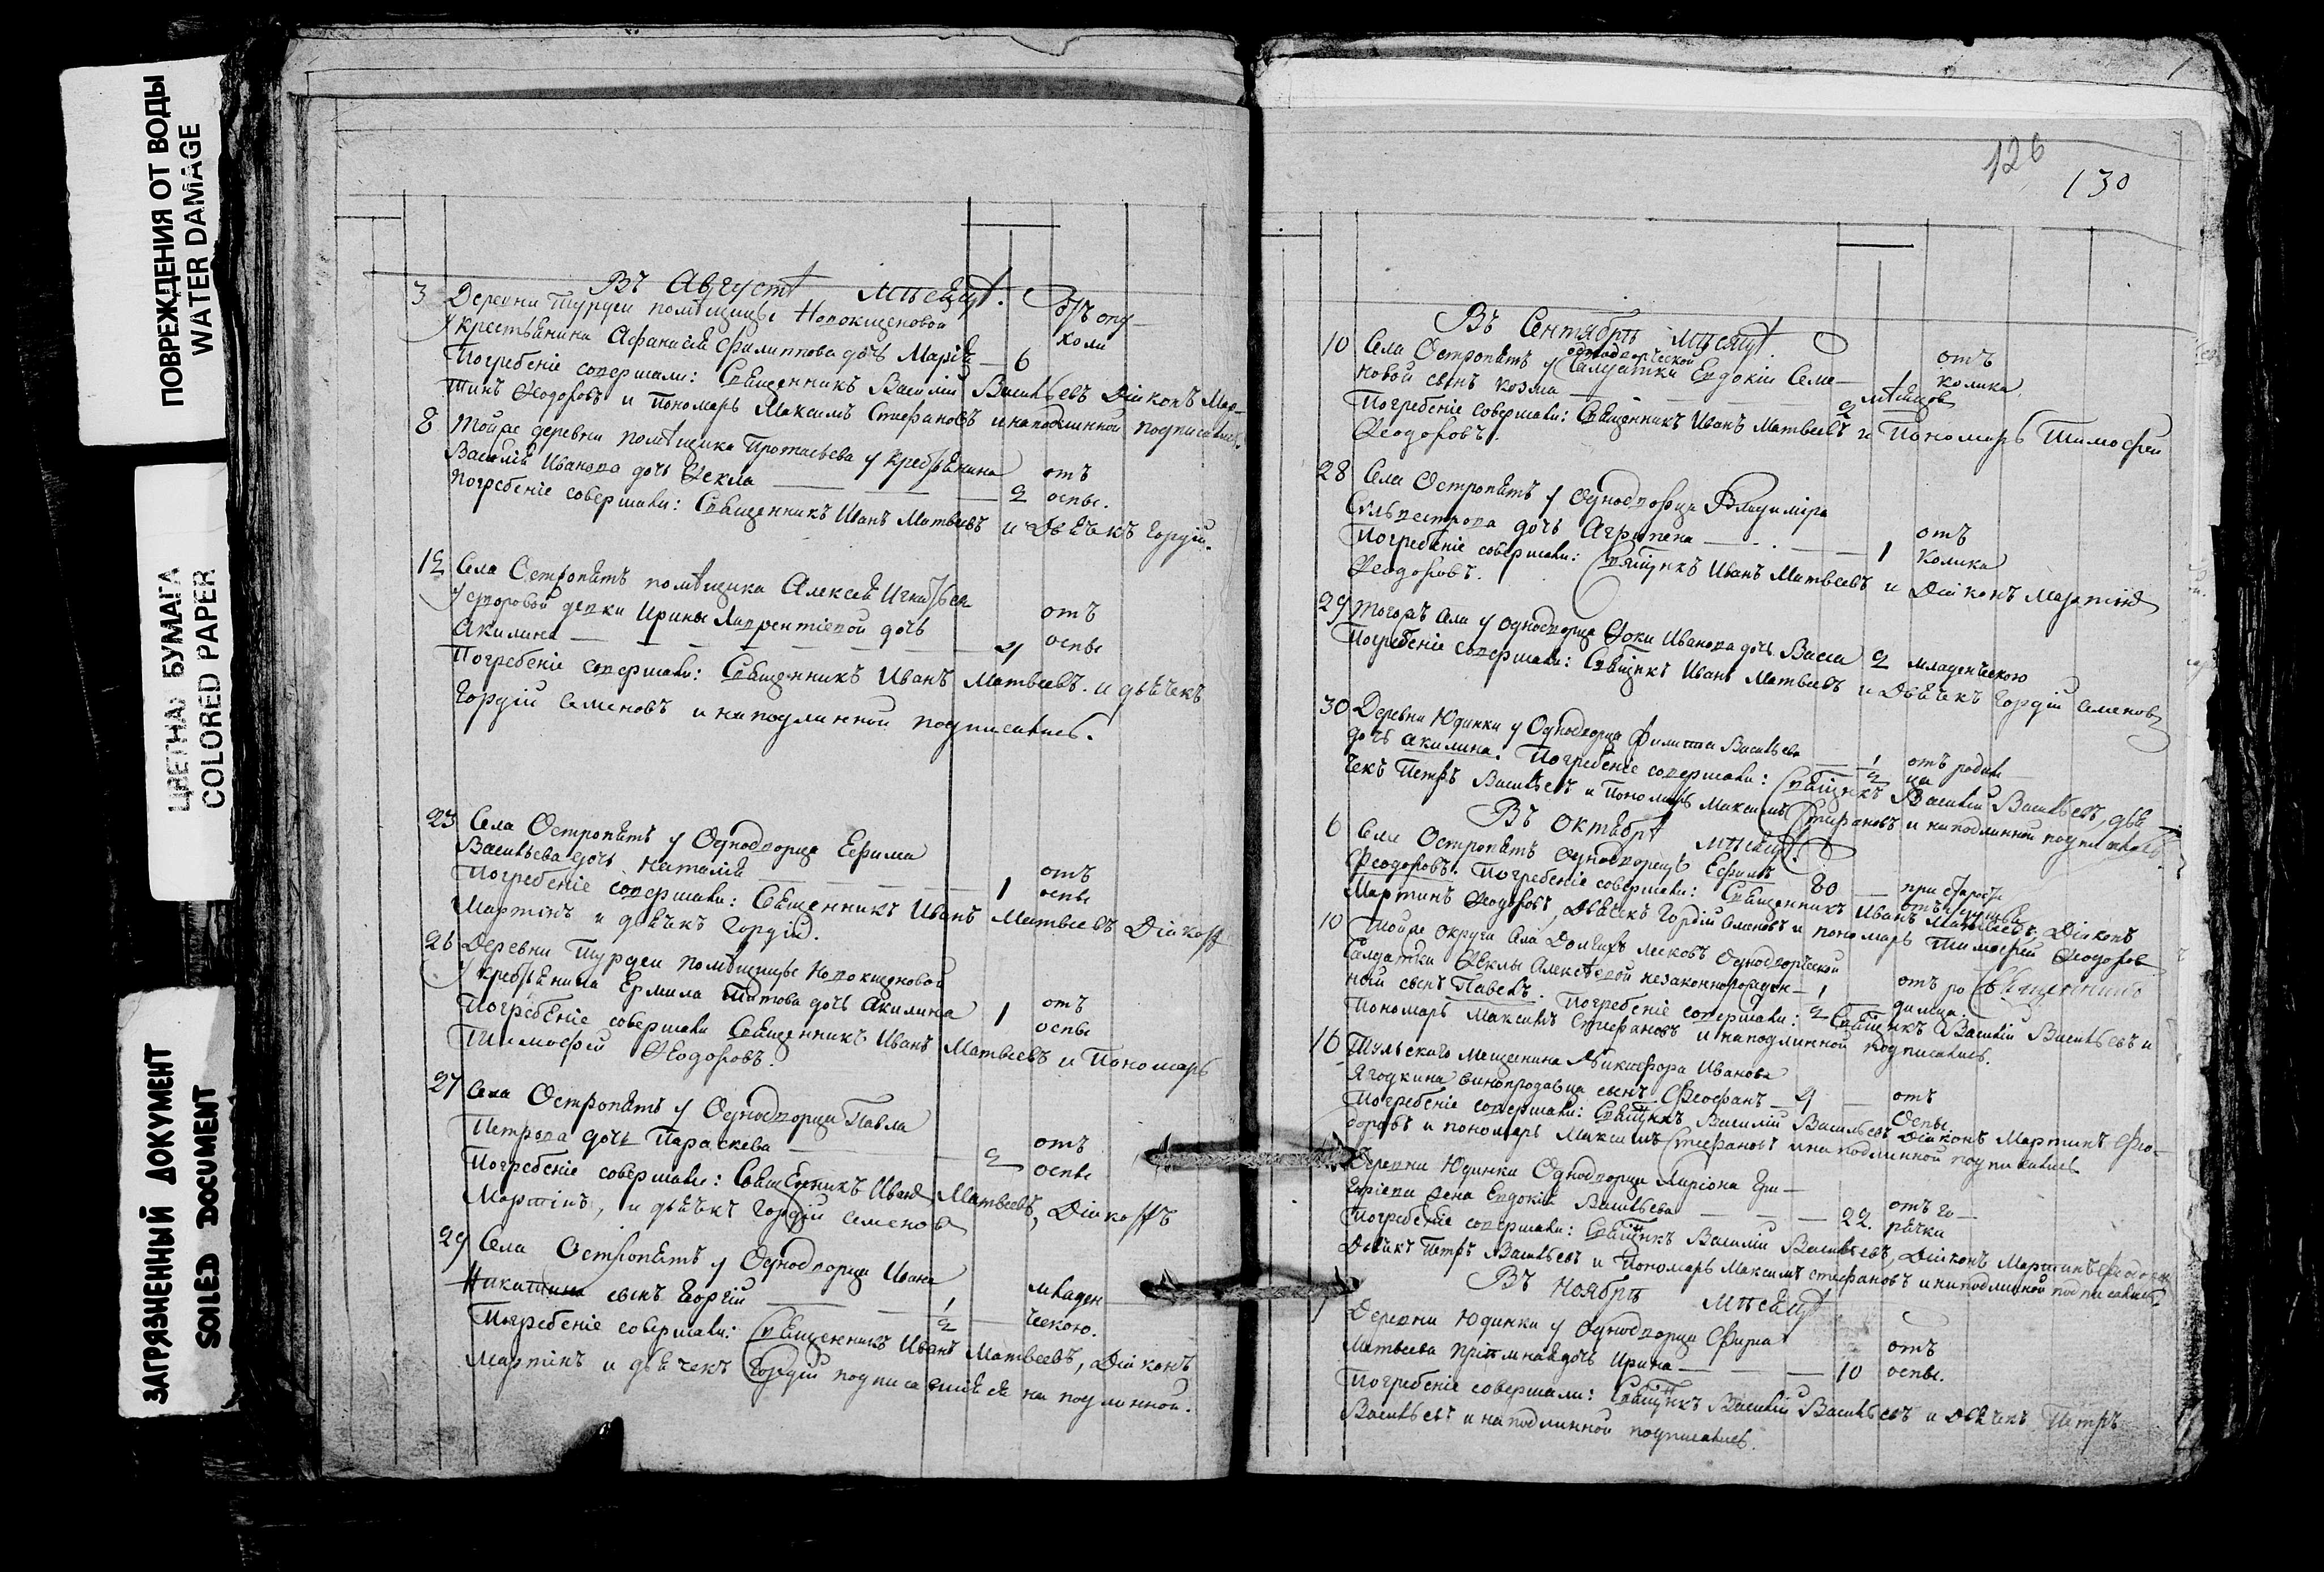 ПОВРЕЖДЕНИЯ ОТ ВОДЫ
WATER DAMAGE
ЦВЕТНАЯ БУМАГА
COLORED PAPER
ЗАГРЯЗНЕННЫЙ ДОКУМЕНТ
SOILED DOCUMENT
Въ Августѣ мѣсяцѣ.
3 Деревни Турдеи помѣщицы Новокщеновой
у крестьянина Афанасія Филиппова дочь Марія — 6 отъ опу-
холи
Погребеніе совершали: Священникъ Василій Васильевъ Діяконъ Мар-
тинъ Ѳеодоровъ и Пономарь Максимъ Стефановъ и на подлинной подписались.
8 Тойже деревни помѣщика Протасьева у крестьянина
Василія Иванова дочь Ѳекла — 2 отъ оспы.
Погребеніе совершали: Священникъ Иванъ Матвеевъ и Дьячекъ Гордій.
12 Села Остропятъ помѣщика Алексея Игнатьева
у дворовой девки Ирины Лаврентіевой дочь
Акилина — 4 отъ оспы
Погребеніе совершали: Священникъ Иванъ Матвеевъ и дьячекъ
Гордій Семеновъ и на подлинной подписались.
23 Села Остропятъ у Однодворца Ефима
Васильева дочь Наталія — 1 отъ оспы
Погребеніе совершали: Священникъ Иванъ Матвеевъ Діяконъ
Мартінъ и дьячекъ Гордій.
26 Деревни Турдеи помѣщицы Новокщеновой
у крестьянина Ермила Титова дочь Акилина 1 отъ оспы
Погребеніе совершали Священникъ Иванъ Матвеевъ и Пономарь
Тимофей Ѳеодоровъ.
27 Села Остропятъ у Однодворца Павла
Петрова дочь Параскева — 2 отъ оспы
Погребеніе совершали: Священникъ Иванъ Матвеевъ, Діяконъ
Мартінъ, и дьячекъ Гордій Семеновъ
29 Села Остропятъ у Однодворца Ивана
Никитина сынъ Георгій — 1/2 младен
ческою.
Погребеніе совершали: Священникъ Иванъ Матвеевъ, Діяконъ
Мартінъ и дьячекъ Гордій подписавшійся на подлинной.
126
130
Въ Сентябрѣ мѣсяцѣ
10 Села Остропятъ у однодворческой Салдатки Евдокіи Семе-
новой сынъ Козма — 2 мѣсяцов отъ колика
Погребеніе совершали: Священникъ Иванъ Матвеевъ и Пономарь Тимофей
Ѳеодоровъ.
28 Села Остропятъ у Однодворца Владиміра
Сильвестрова дочь Агрипена — 1 отъ Колика
Погребеніе совершали: Священникъ Иванъ Матвеевъ и Діяконъ Мартінъ
Ѳеодоровъ.
29 Тогожъ села у однодворца Фоки Иванова дочь Васса 2 младенческою
Погребеніе совершали: Священикъ Иванъ Матвеевъ и Дьячекъ Гордій Семеновъ
30 Деревни Юдинки у Однодворца Филипа Васильева
дочь Акилина. — 1/2 отъ родим
ца Погребеніе совершали: Священикъ Василій Васильевъ, дья-
чекъ Петръ Васильевъ и Пономарь Максимъ Стефановъ и на подлинной подписались.
Въ Октябрѣ мѣсяцѣ.
6 Села Остропятъ однодворецъ Ефимъ
Феодоровъ. 80 — при старости
Погребеніе совершали: Священникъ Иванъ Матвеевъ, Діяконъ
Мартинъ Ѳеодоровъ, Дьячекъ Гордій Семеновъ и пономарь Тимофей Ѳеодоров
10 Тойже округи Села Долгихъ лесковъ Однодворческой
Салдатки Ѳеклы Алексѣевой незаконнорожден-
ный сынъ Павелъ. 1/2 отъ ро
димца.
Погребеніе совершали: Священикъ Василій Васильевъ и
Пономарь Максимъ Стефановъ и на подлинной подписались.
16 Тульскаго мещанина Никифора Иванова
Ягодкина винопродавца сынъ Феофанъ — 9 — отъ Оспы.
Погребеніе совершали: Священикъ Василій Васильевъ Діяконъ Мартинъ Фео-
доровъ и пономарь Максимъ Стефановъ и на подлинной подписались
Деревни Юдинки Однодворца Ларіона Гри-
горіева жена Евдокія Васильева — 22. отъ го-
рячки
Погребеніе совершали: Священикъ Василій Васильевъ, Діяконъ Мартинъ Феодоров
Дьячекъ Петръ Васильевъ и Пономарь Максимъ стефановъ и на подлинной подписались
Въ Ноябрѣ мѣсяцѣ
1 Деревни Юдинки у Однодворца Фирса
Матвеева пріемная дочь Ирина — 10 отъ оспы.
Погребеніе совершали: Священикъ Василій Васильевъ и Дьячекъ Петръ
Васильевъ и на подлинной подписались.